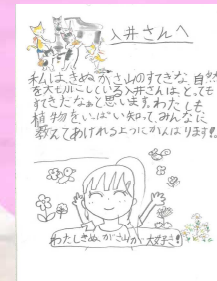 入井さんへ
私は、きぬがさ山のすてきな自然
を大切にしている入井さんは、とっても
すてきだなぁと思います。わたしも
植物をいっぱい知って、みんなに
教えてあげれるようにがんばります!!
わたしきぬがさ山が大好き!